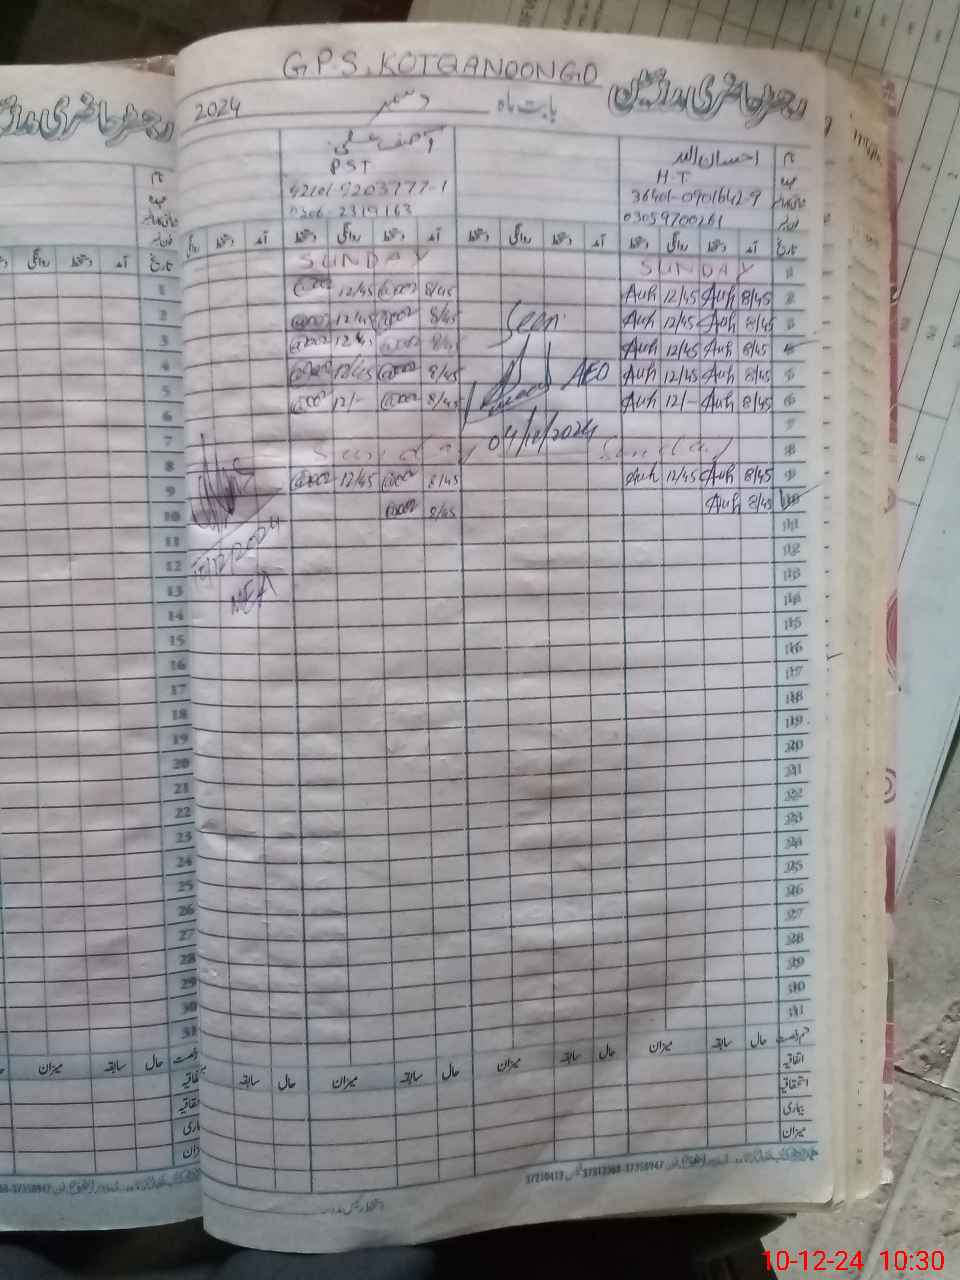 G.P.S. KOTQANOONGO
رجسٹر حاضری مدرسین
بابت ماہ دسمبر 2024
نام احسان اللہ
عہدہ H.T
36401-0901642-9
03059700261
PST
42101-9203777-1
0306-2319163
تاریخ آمد دستخط روانگی دستخط آمد دستخط روانگی دستخط آمد دستخط روانگی
1 SUNDAY SUNDAY
2 8/45 Auh 12/45 Auh 8/45 12/45
3 8/45 Auh 12/45 Auh Seen 8/45 12/45
4 8/45 Auh 12/45 Auh 8/45 12/45
5 8/45 Auh 12/45 Auh AEO 8/45 12/45
6 8/45 Auh 12/- Auh 8/45 12/-
7 04/12/2024
8 Sunday Sunday
9 8/45 Auh 12/45 Auh 8/45 12/45
10 8/45 Auh 8/45
11
12 10/12/2024
13 MEA
14
15
16
17
18
19
20
21
22
23
24
25
26
27
28
29
30
31
قسم رخصت حال سابقہ میزان حال سابقہ میزان حال سابقہ
اتفاقیہ
استحقاقیہ
بیماری
میزان
10-12-24 10:30